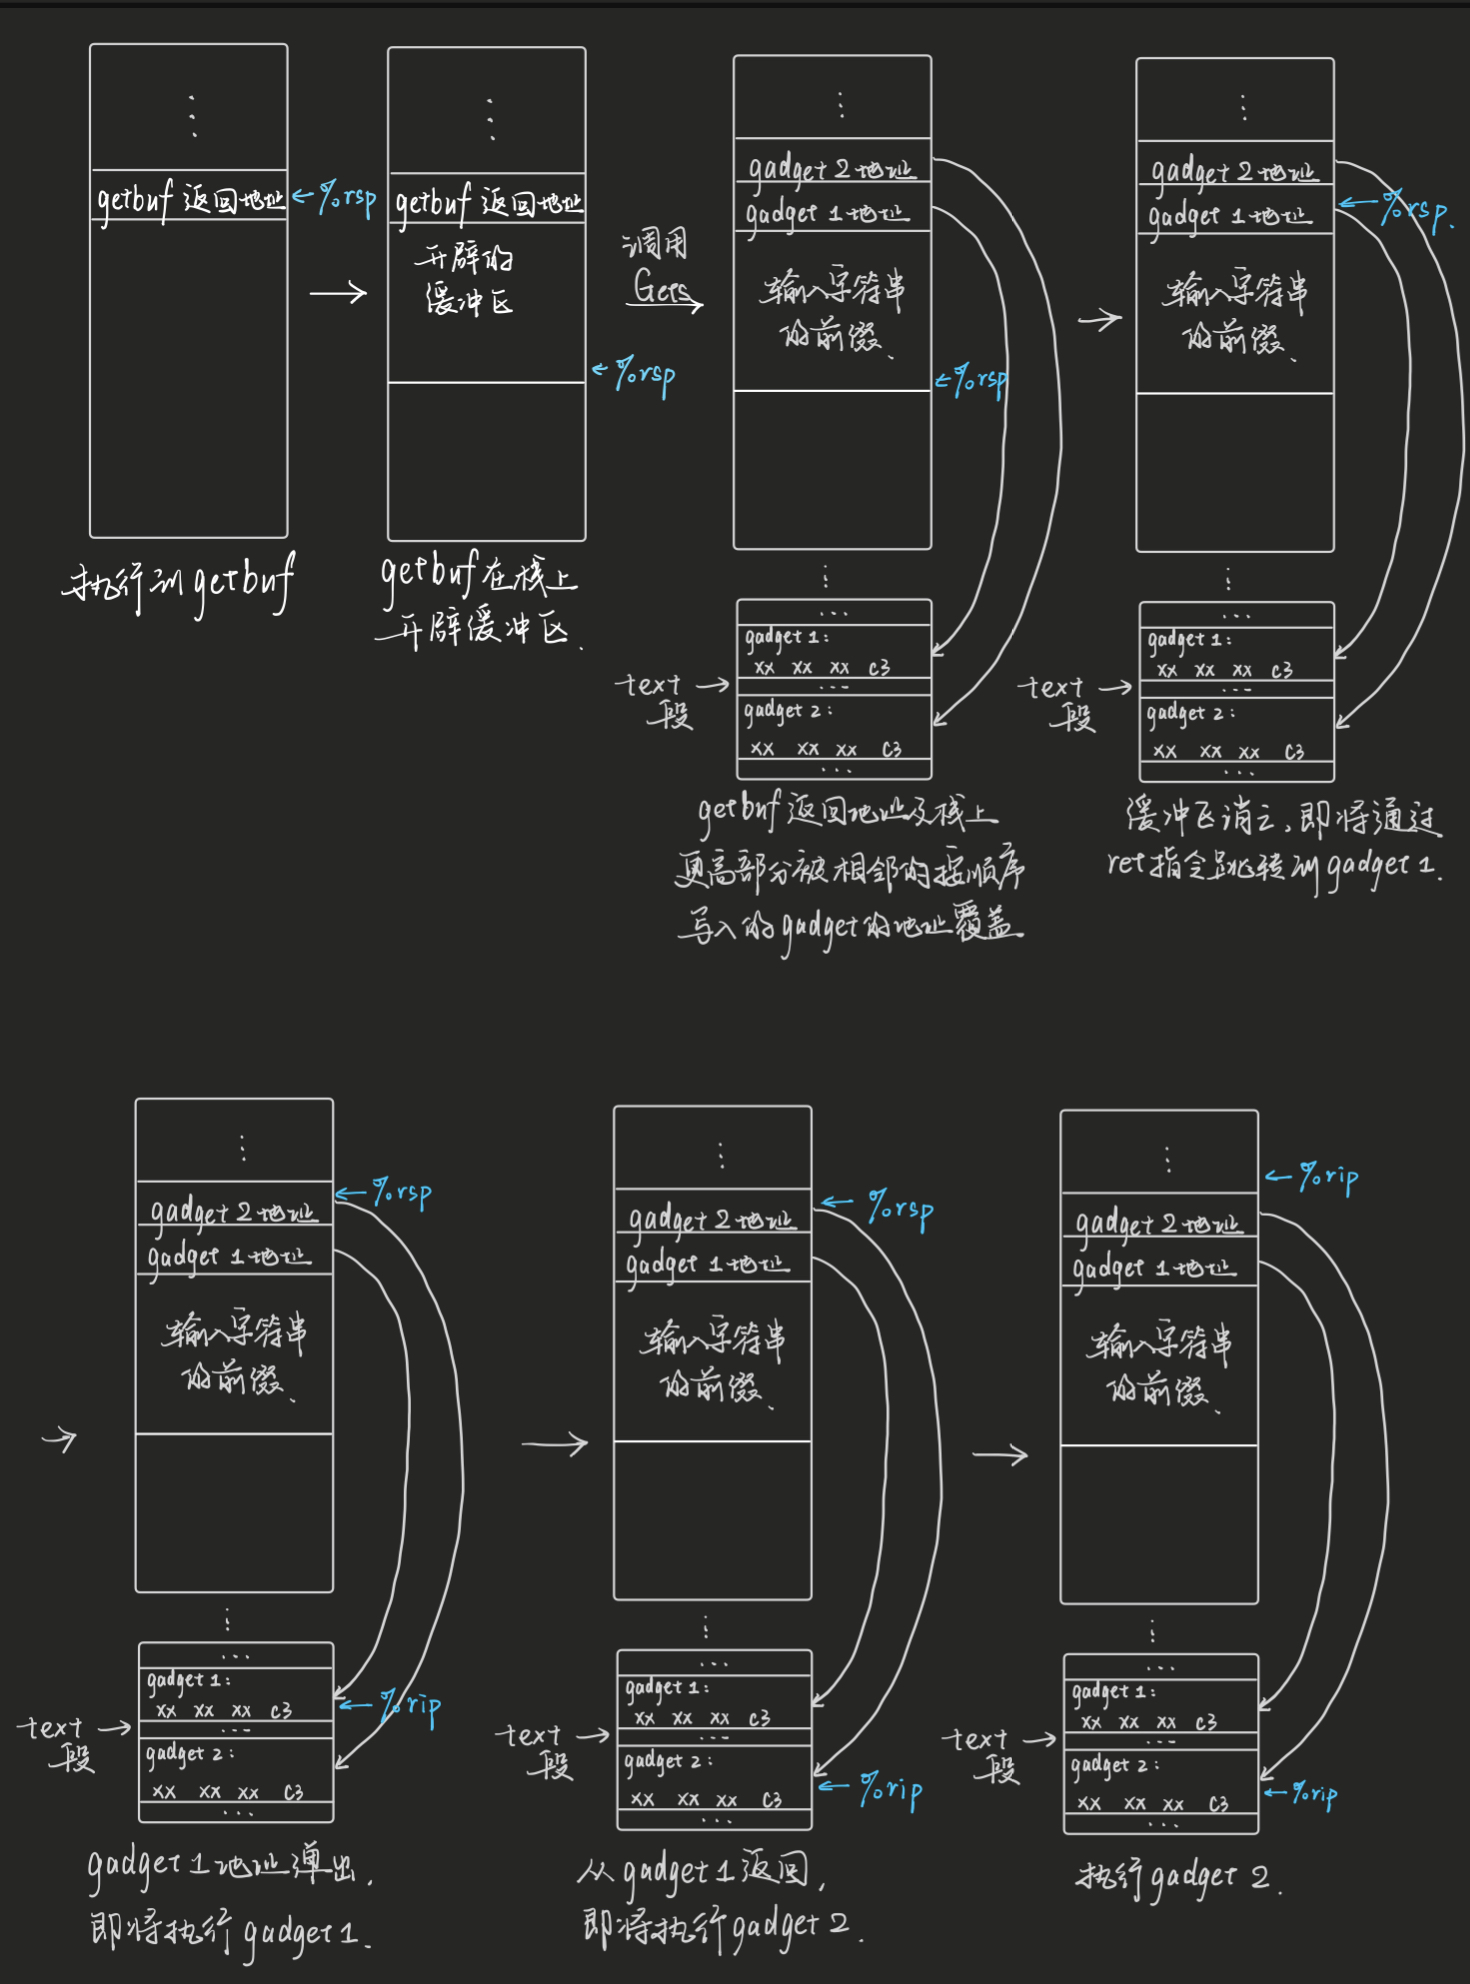 getbuf 返回地址
←%rsp
执行到getbuf
getbuf 返回地址
开辟的
缓冲区
←%rsp
getbuf在栈上
开辟缓冲区.
调用
Gets
gadget 2地址
gadget 1地址
输入字符串
的前缀.
←%rsp
...
gadget 1:
xx xx xx c3
...
gadget 2:
xx xx xx c3
...
text
段
getbuf返回地址及栈上
更高部分被相邻的按顺序
写入的gadget的地址覆盖
gadget 2地址
gadget 1地址
←%rsp.
输入字符串
的前缀.
...
gadget 1:
xx xx xx c3
...
gadget 2:
xx xx xx c3
...
text
段
缓冲区消亡,即将通过
ret指令跳转到gadget 1.
←%rsp
gadget 2地址
gadget 1地址
输入字符串
的前缀.
...
gadget 1:
xx xx xx c3
←%rip
...
gadget 2:
xx xx xx c3
...
text
段
gadget 1地址弹出,
即将执行gadget 1.
←%rsp
gadget 2地址
gadget 1地址
输入字符串
的前缀.
...
gadget 1:
xx xx xx c3
...
gadget 2:
xx xx xx c3
←%rip
...
text
段
从gadget 1返回,
即将执行gadget 2.
←%rip
gadget 2地址
gadget 1地址
输入字符串
的前缀.
...
gadget 1:
xx xx xx c3
...
gadget 2:
xx xx xx c3
←%rip
...
text
段
执行gadget 2.